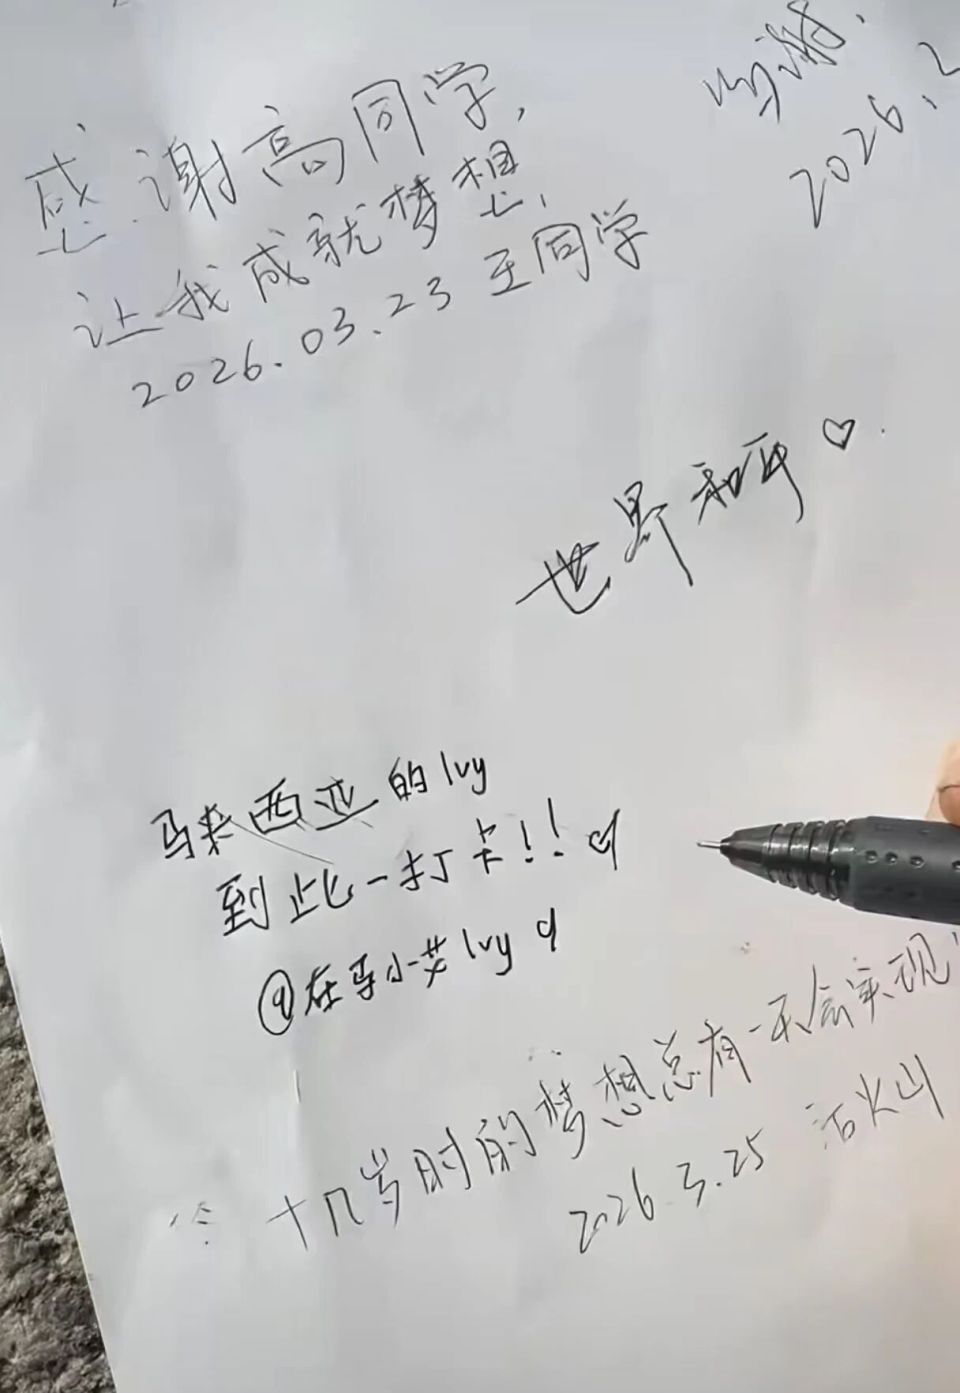 感谢高同学,
让我成就梦想,
2026.03.23 王同学
2026.2
世界和平♡.
马来西亚的Ivy
到此一打卡!!♡
@在马小艾Ivy
十几岁时的梦想总有一天会实现"
2026.3.25 活火山